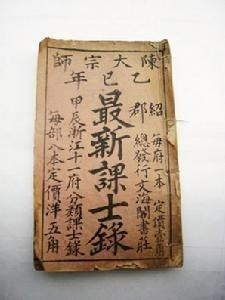 陳大宗師
乙巳年
紹郡
每府一本 定價角
總發行文海閣書莊
最新課士錄
甲辰浙江十一府分類課士錄
每部八本定價洋五角